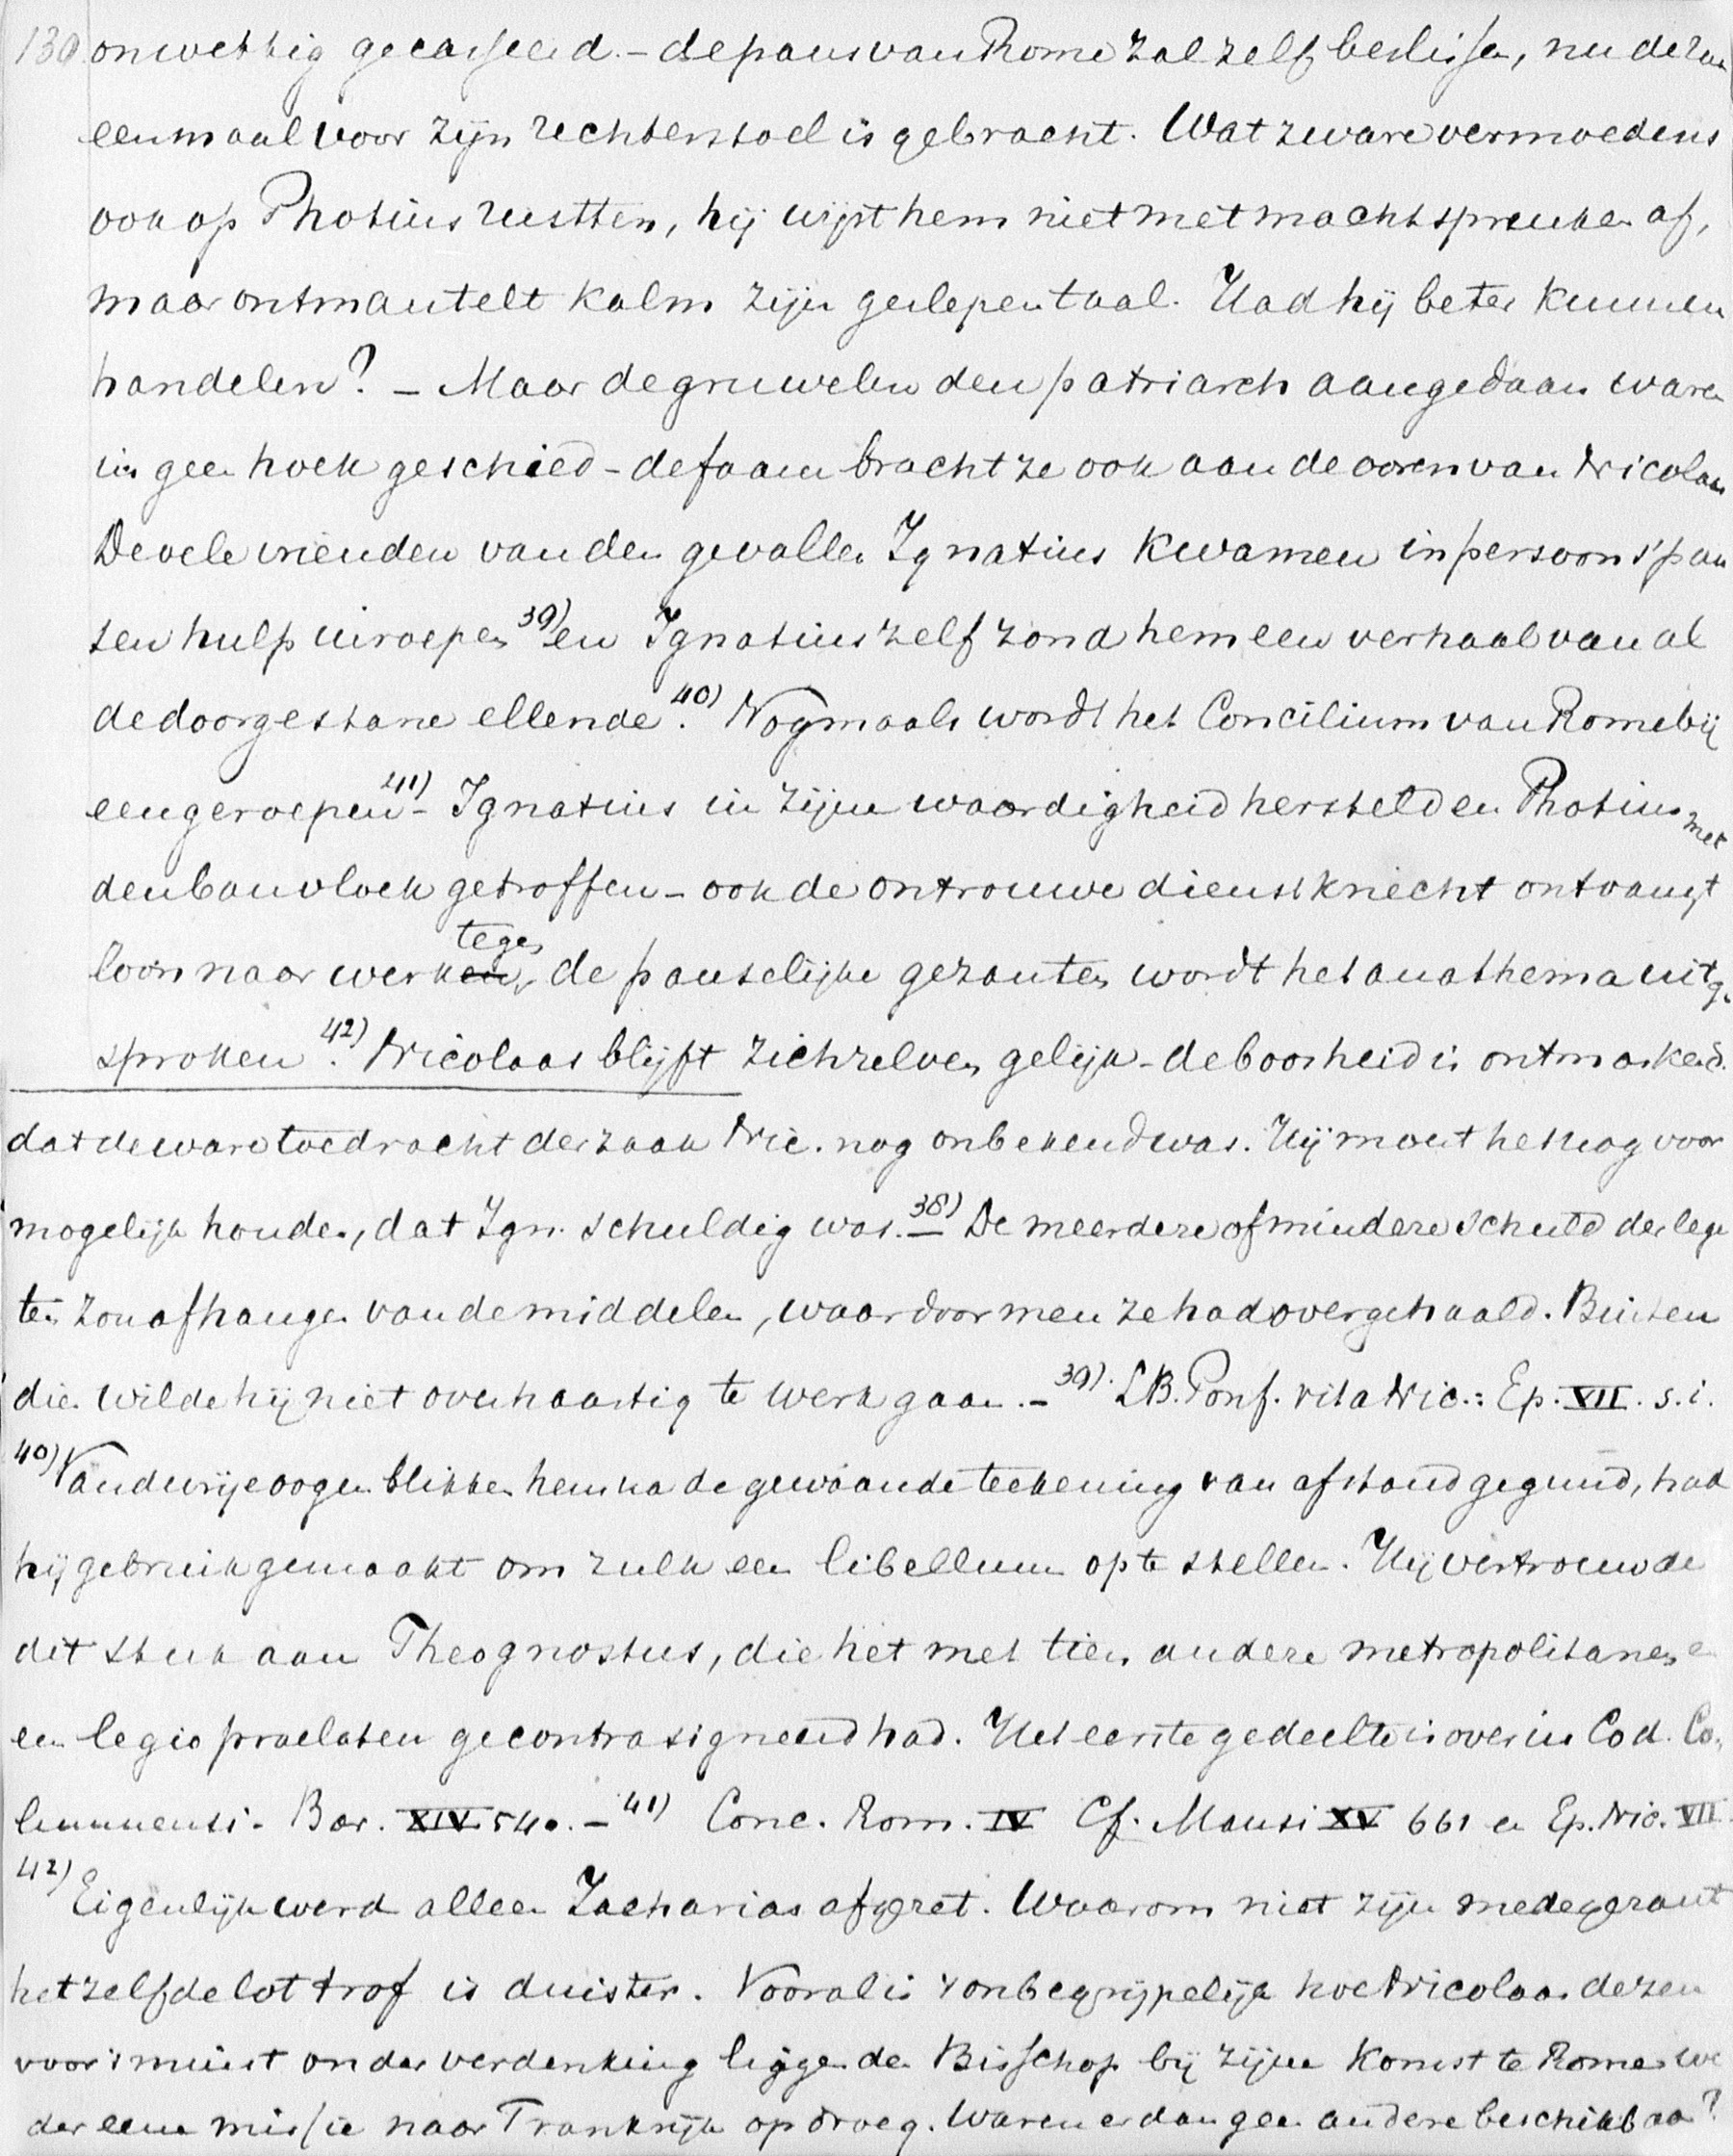 130 onwettig gecasseerd. - de paus van Rome zal zelf beslissen, nu de zaak
eenmaal voor zijn rechterstoel is gebracht. Wat zware vermoedens
ook op Photius rustten, hij wijst hem niet met machtspreuken af,
maar ontmantelt kalm zijn geslepen taal. Had hij beter kunnen
handelen? - Maar de gruwelen den patriarch aangedaan waren
in geen hoek geschied - de faam bracht ze ook aan de ooren van Nicolaas
De vele vrienden van den gevallen Ignatius kwamen in persoon 's pau
sen hulp inroepen 39) en Ignatius zelf zond hem een verhaal van al
de doorgestane ellende. 40) Nogmaals wordt het Concilium van Rome bij
eengeroepen 41) - Ignatius in zijne waardigheid hersteld en Photius met
den banvloek getroffen - ook de ontrouwe dienstknecht ontvangt
loon naar werken, tegen de pauselijke gezanten wordt het anathema uitge
sproken. 42) Nicolaas blijft zichzelven gelijk - de boosheid is ontmaskerd.
dat de ware toedracht der zaak Nic. nog onbekend was. Hij moest het nog voor
mogelijk houden, dat Ign. schuldig was. - 38) De meerdere of mindere schuld der lega
ten zou afhangen van de middelen, waardoor men ze had overgehaald. Buiten
dien wilde hij niet overhaastig te werk gaan. - 39). LB. Ponf. vita Nic.: Ep. XII. s. i.
40) Van de vrije oogenblikken hem na de gewaande teekening van afstand gegund, had
hij gebruik gemaakt om zulk een libellum op te stellen. Hij vertrouwde
dit stuk aan Theognostus, die het met tien andere metropolitanen en
een legio praelaten gecontrasigneerd had. Het eerste gedeelte is over in Cod. Co
lumnensi. Bar. XIV 540. - 41) Conc. Rom. IV Cf. Mansi XV 661 en Ep. Nic. VII.
42) Eigenlijk werd alleen Zacharias afgezet. Waarom niet zijn medegezant
hetzelfde lot trof is duister. Vooral is 't onbegrijpelijk hoe Nicolaas dezen
voor 't minst onder verdenking liggenden Bisschop bij zijne komst te Rome we
der eene missie naar Frankrijk opdroeg. Waren er dan geen andere beschikbaar?